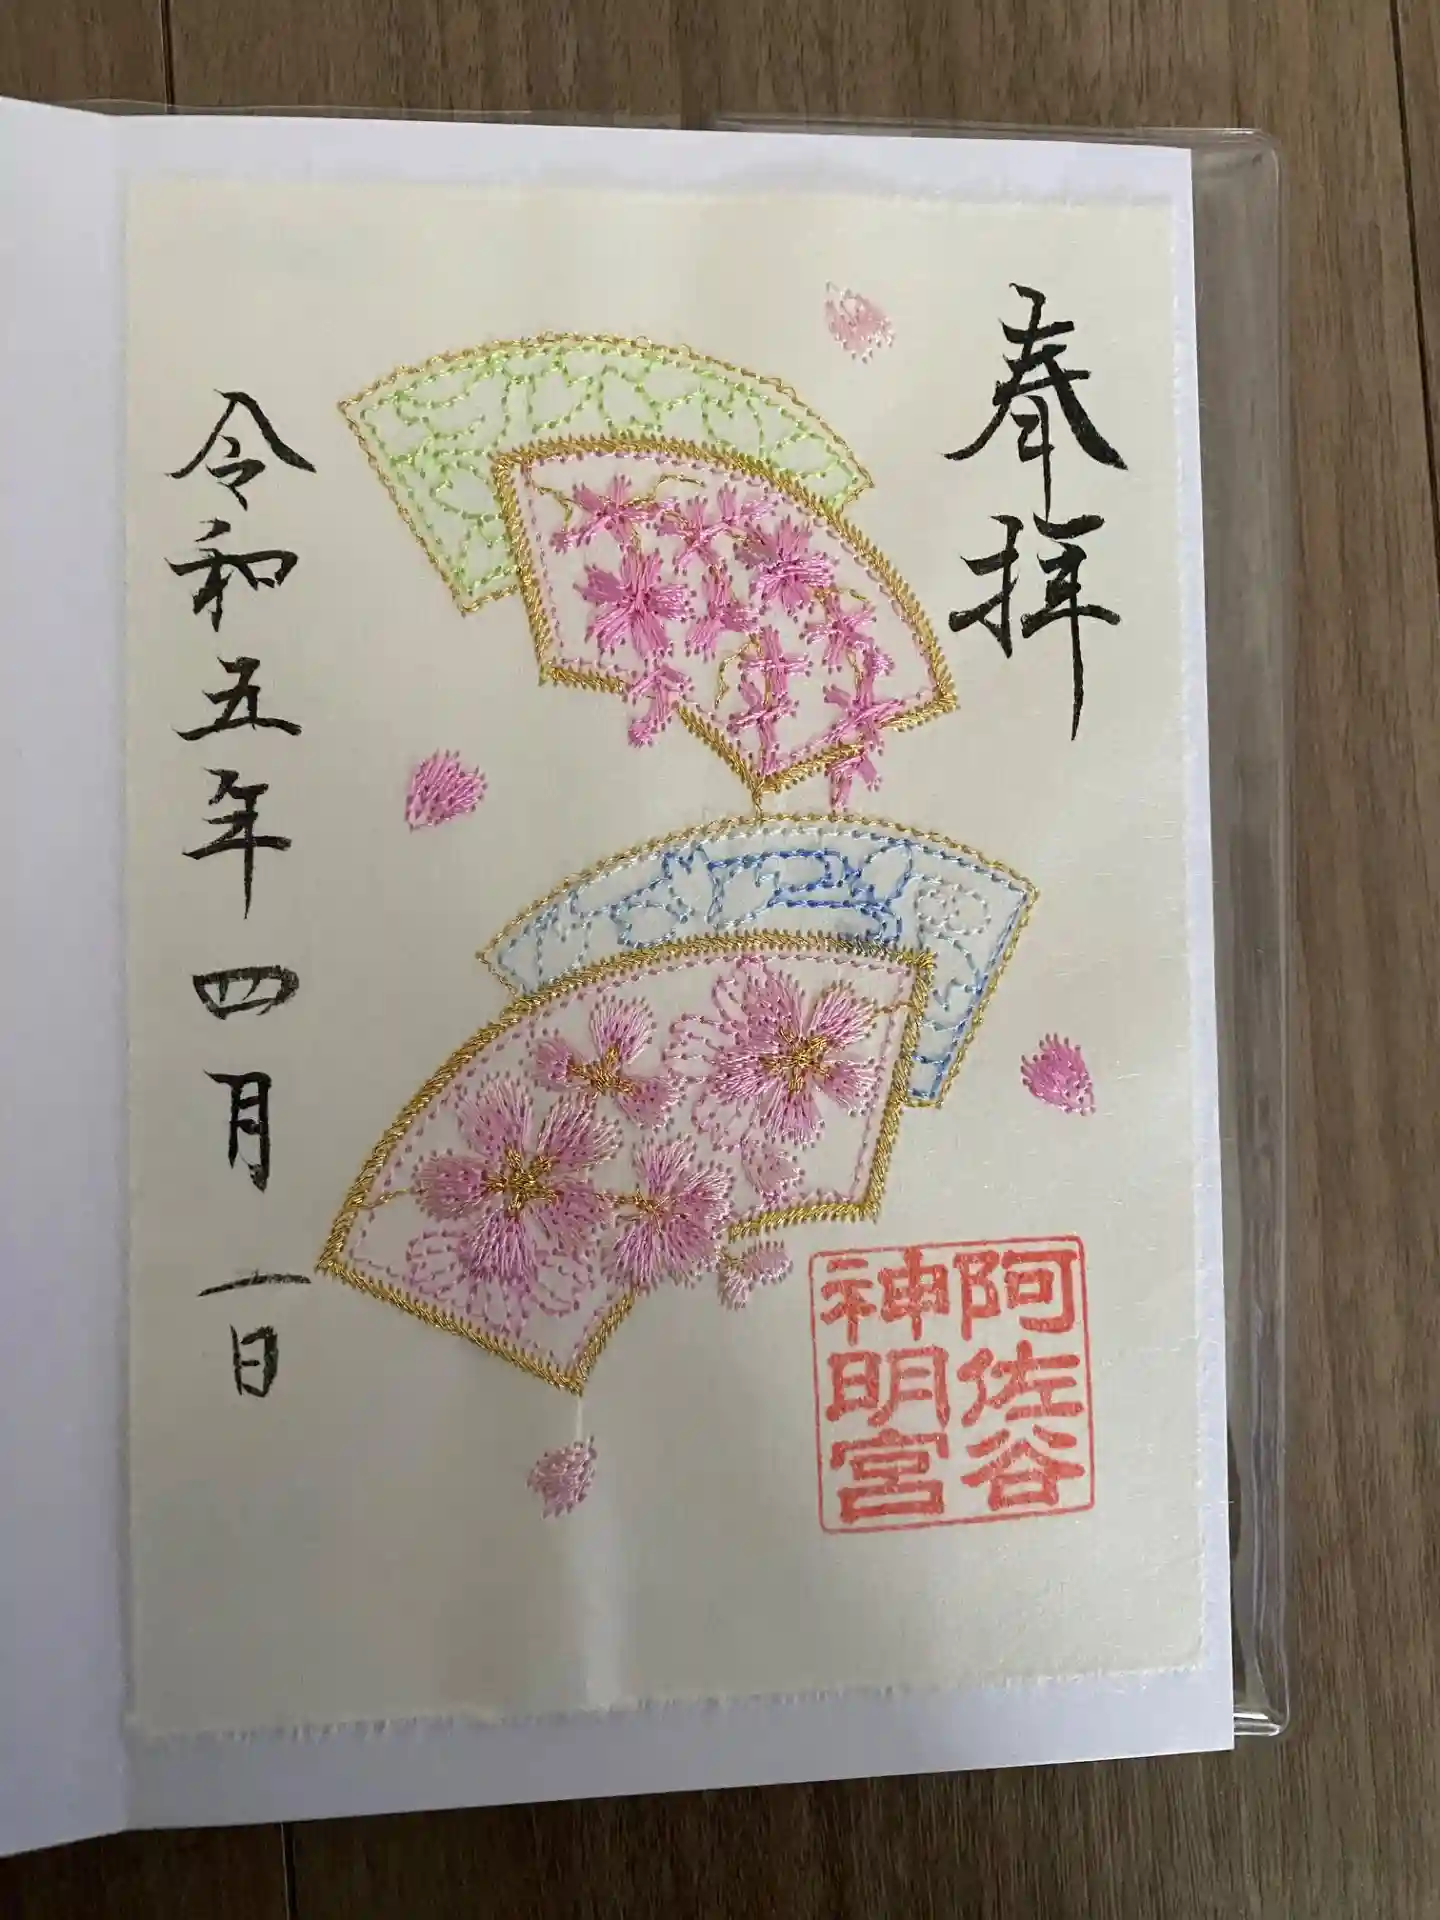 奉拝
阿佐谷
神明宮
令和五年四月一日